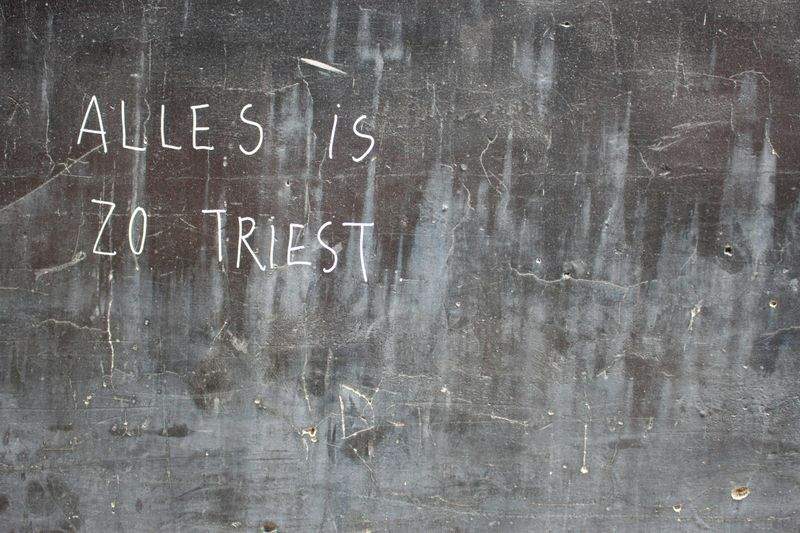 ALLES is
ZO TRIEST